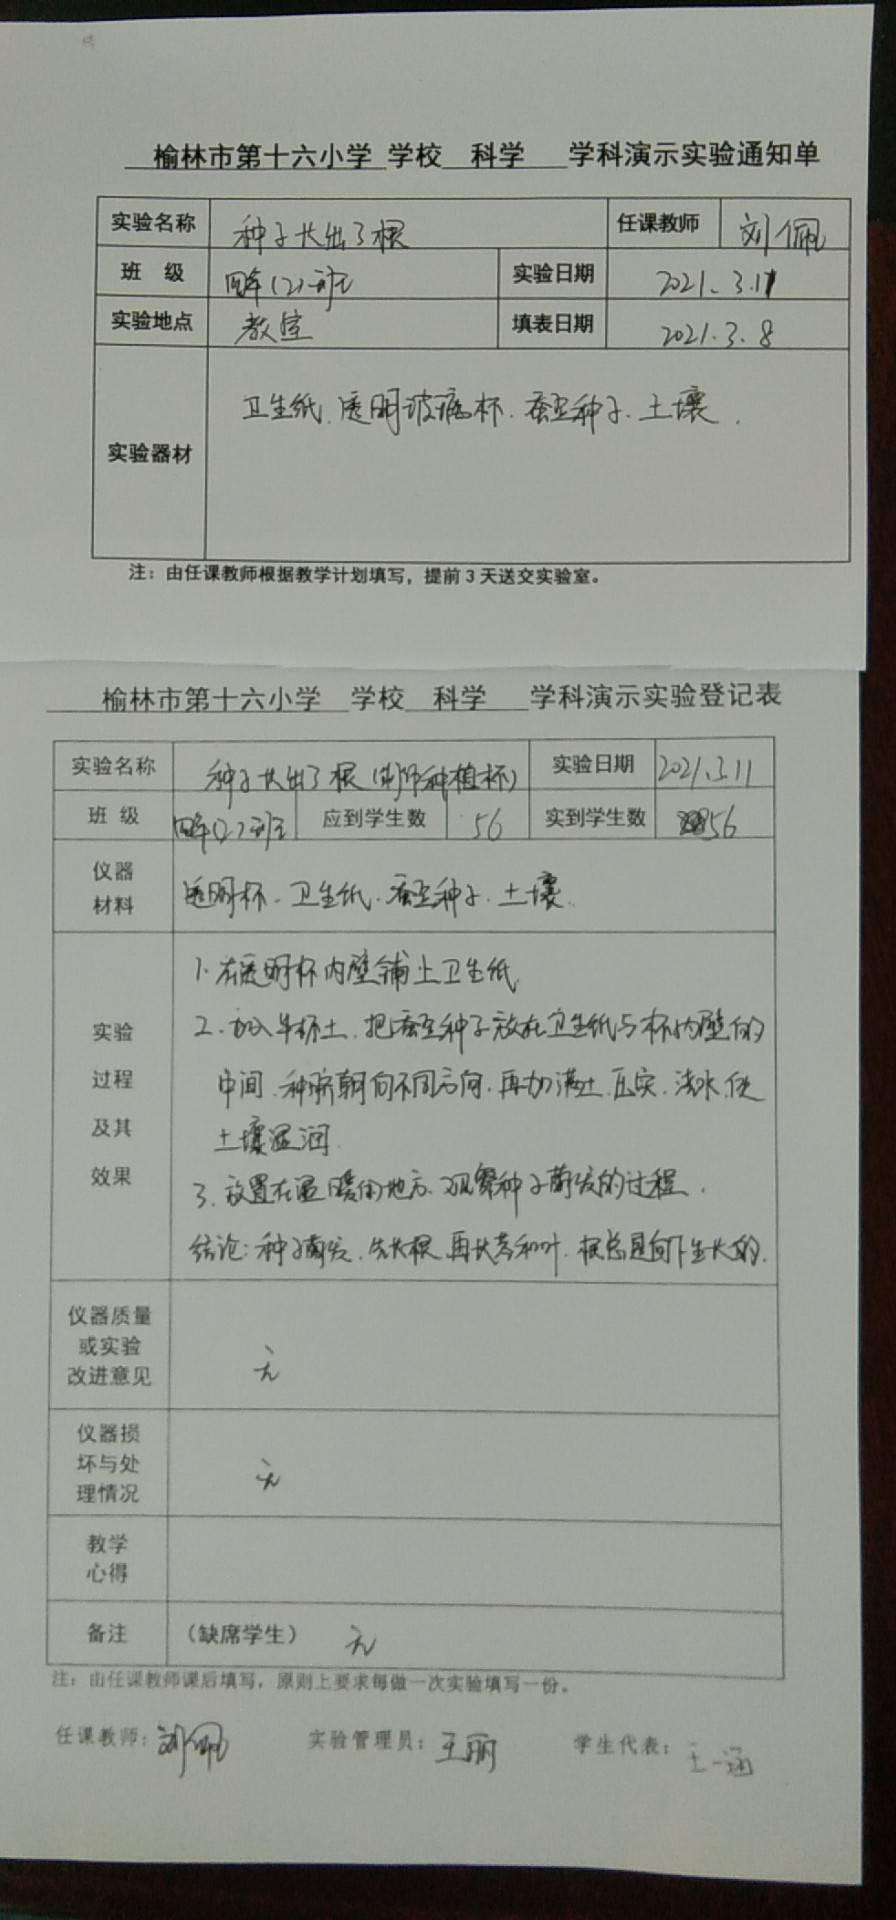 榆林市第十六小学 学校 科学 学科演示实验通知单
实验名称 种子长出了根 任课教师 刘佩
班 级 四年(2)班 实验日期 2021.3.11
实验地点 教室 填表日期 2021.3.8
实验器材 卫生纸、透明玻璃杯、蚕豆种子、土壤.
注：由任课教师根据教学计划填写，提前3天送交实验室。
榆林市第十六小学 学校 科学 学科演示实验登记表
实验名称 种子长出了根(制作种植杯) 实验日期 2021.3.11
班 级 四年(2)班 应到学生数 56 实到学生数 56
仪器
材料
透明杯、卫生纸、蚕豆种子、土壤.
实验
过程
及其
效果
1.在透明杯内壁铺上卫生纸
2.加入半杯土,把蚕豆种子放在卫生纸与杯内壁的
中间,种脐朝向不同方向,再加满土,压实,浇水,使
土壤湿润.
3.放置在温暖的地方,观察种子萌发的过程.
结论:种子萌发,先长根,再长茎和叶,根总是向下生长的.
仪器质量
或实验
改进意见
无
仪器损
坏与处
理情况
无
教学
心得
备注 （缺席学生） 无
注：由任课教师课后填写，原则上要求每做一次实验填写一份。
任课教师：刘佩 实验管理员：王丽 学生代表：王一涵